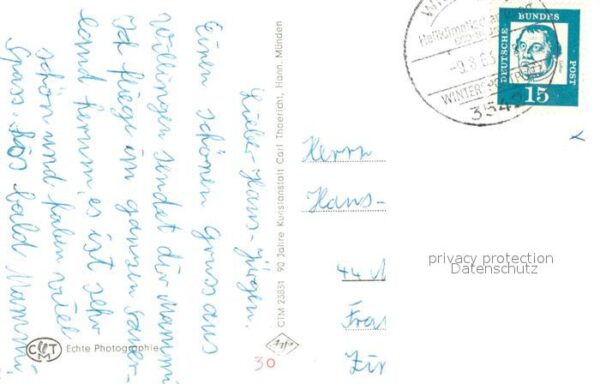 Lieber Hans-Jürgen.
Einen schönen Gruss aus
Willingen sendet dir Mammi
Ich fliege im ganzen Sauer-
land herum, es ist sehr
schön und haben viel
Spass. Bis bald Mammi
CTM
Echte Photographie
CTM 23831 90 Jahre Kunstanstalt Carl Thoericht, Hann. Münden
Agfa
30
Heilklimatischer
-9.8.6
WINTERSPORTPLATZ
354
DEUTSCHE BUNDES POST
15
Herrn
Hans-
44
privacy protection
Datenschutz